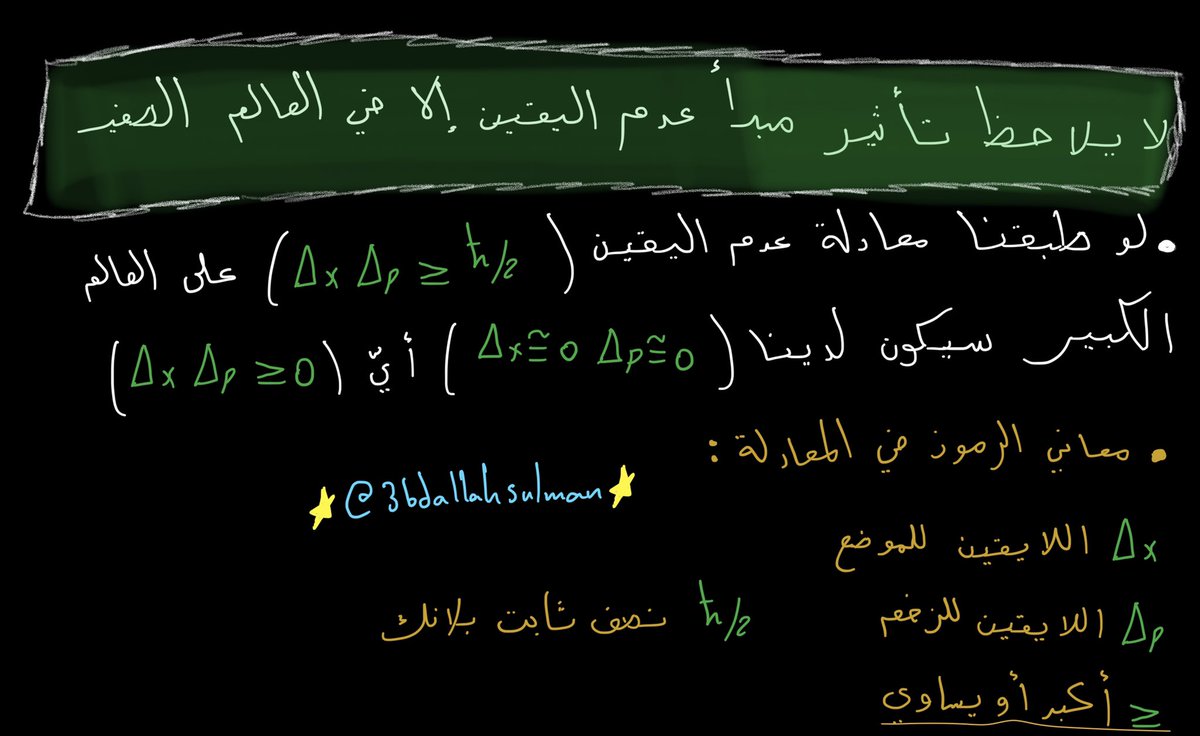 لا يلاحظ تأثير مبدأ عدم اليقين إلا في العالم الصغير
• لو طبقنا معادلة عدم اليقين (Δx Δp ≥ ħ/2) على العالم
الكبير سيكون لدينا (Δx ≅ 0 Δp ≅ 0) أيّ (Δx Δp ≥ 0)
• معاني الرموز في المعادلة :
@3bdallahsulman
Δx اللايقين للموضع
Δp اللايقين للزخم
ħ/2 نصف ثابت بلانك
≥ أكبر أو يساوي